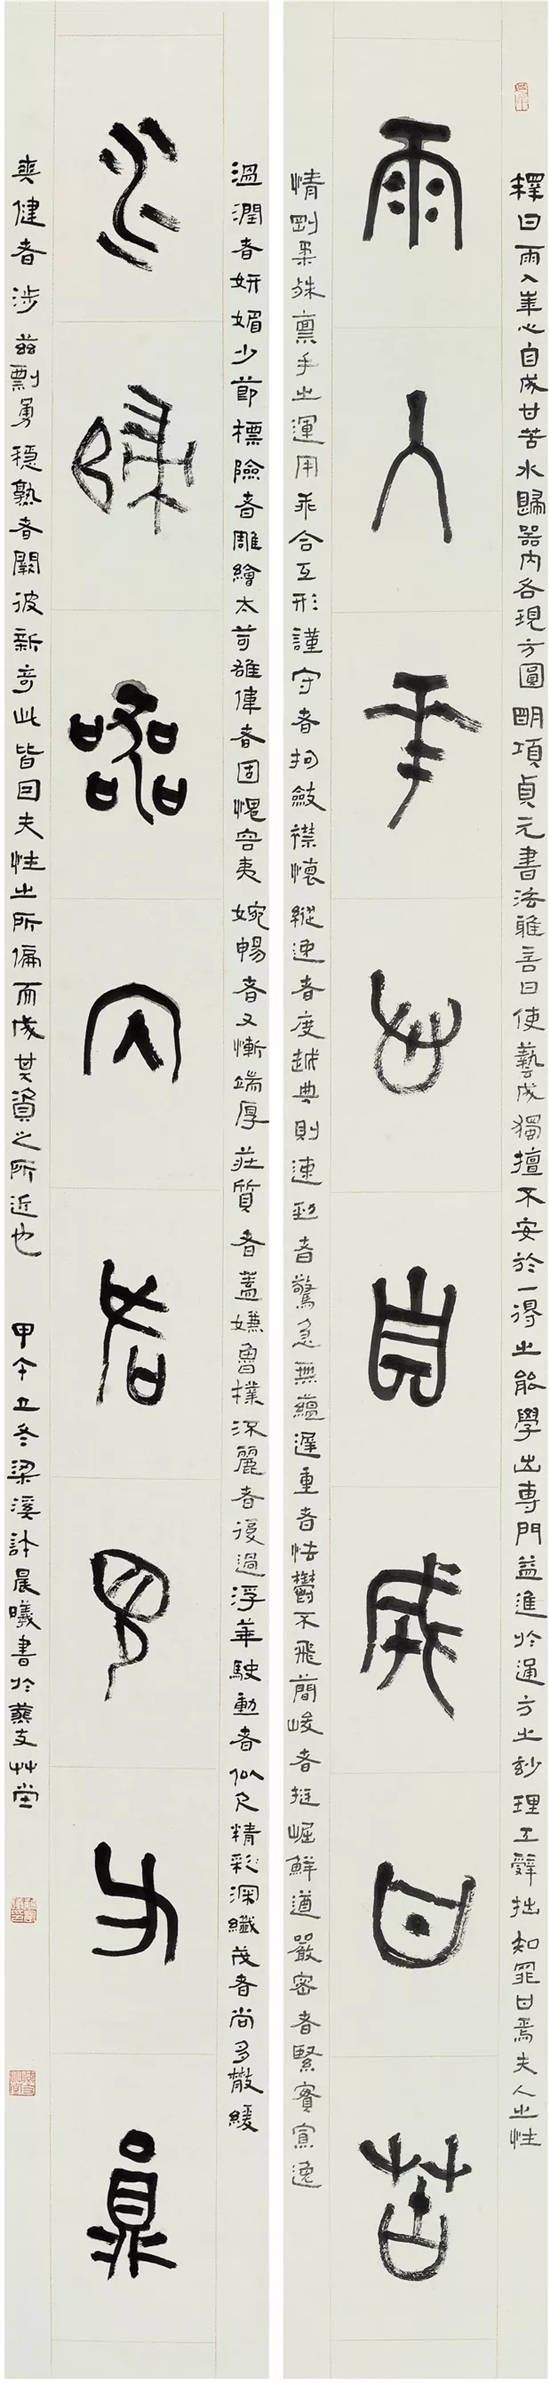 釋曰雨入華心自成甘苦水歸器內各現方圓明項貞元書法雅言曰使藝成獨擅不安於一得之能學出專門益進於通方之妙理工辭拙知罪甘焉夫人之性
雨入華心自成甘苦
情剛柔殊稟手之運用乖合互形謹守者拘斂襟懷縱逸者度越典則速勁者驚急無蘊遲重者怯鬱不飛簡峻者挺崛鮮遒嚴密者緊實寡逸
溫潤者妍媚少節標險者雕繪太苛雄偉者固愧容夷婉暢者又慚端厚莊質者蓋嫌魯樸流麗者復過浮華駛動者似欠精彩深纖茂者尚多散緩
水歸器內各現方圓
爽健者涉茲剽勇穩熟者闕彼新奇此皆因夫性之所偏而成其資之所近也甲午立冬梁溪許晨曦書於艸堂